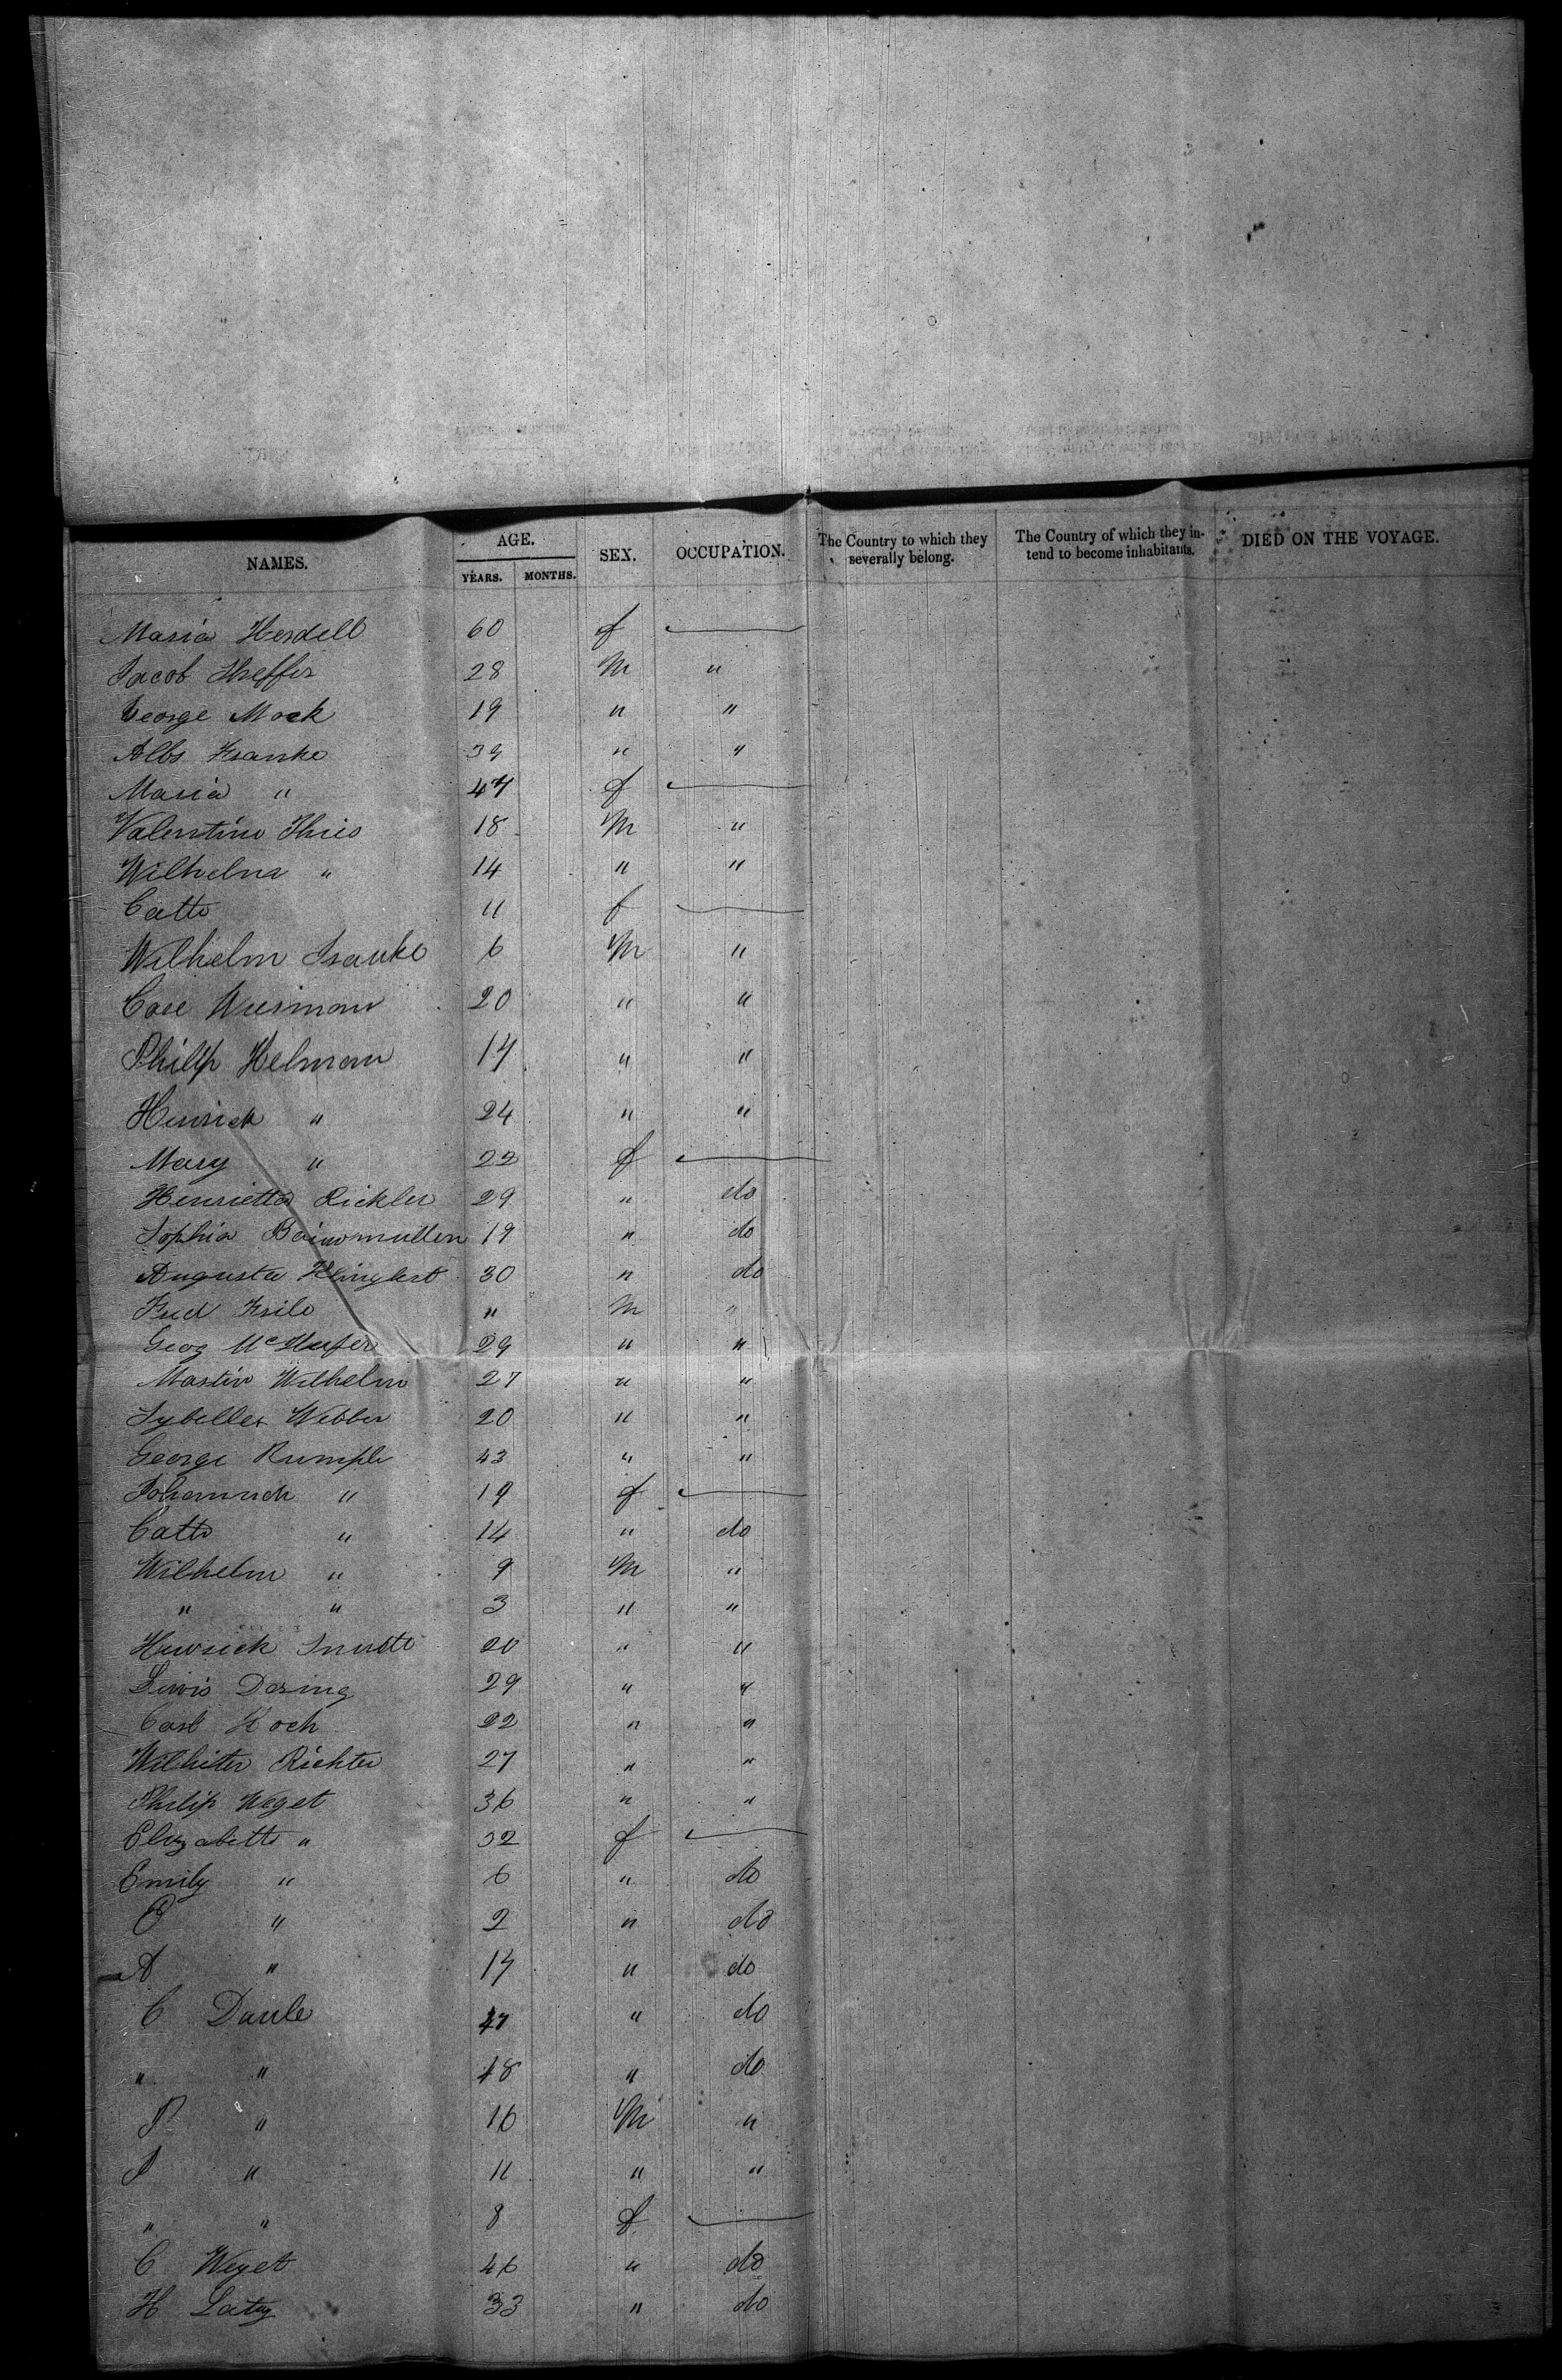 NAMES. AGE. YEARS. MONTHS. SEX. OCCUPATION. The Country to which they severally belong. The Country of which they intend to become inhabitants. DIED ON THE VOYAGE.
Maria Herdell 60 f
Jacob 28 M "
George Mock 19 " "
Albs Franke 39 " "
Maria " 47 f
Valentine Thies 18 M "
Wilhelma " 14 " "
Catto 11 f
Wilhelm Franke 6 M "
20 " "
Philip Helman 17 " "
Henrick " 24 " "
Mary " 22 f
Henrietta Rickler 29 " do
Sophia 19 " do
Augusta 30 " do
Fred " M "
Geog 29 " "
Martin Wilhelm 27 " "
Sybella Webber 20 " "
George Rumple 43 " "
" 19 f
Catto " 14 " do
Wilhelm " 9 M "
" " 3 " "
20 " "
Lewis Dering 29 " "
Carl Koch 22 " "
Richter 27 " "
Philip Weget 36 " "
Elizabette " 32 f
Emily " 6 " do
" 2 " do
A " 17 " do
C Daule 47 " do
" " 18 " do
P " 16 M "
J " 11 " "
" " 8 f
C Weget 46 " do
H 33 " do